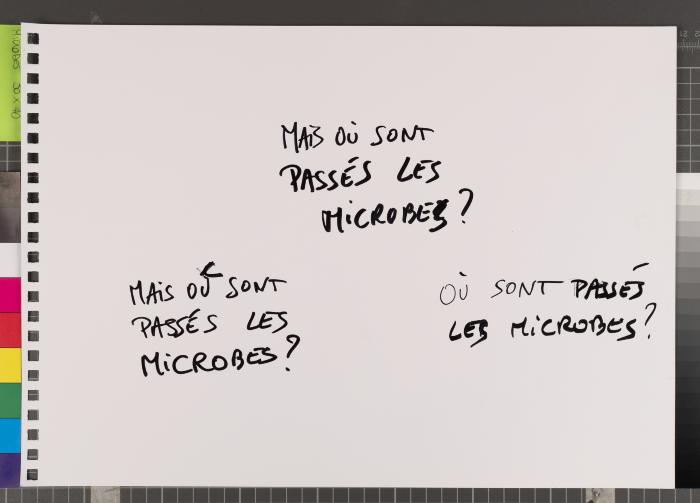 MAIS OÙ SONT
PASSÉS LES
MICROBES ?
MAIS OÙ SONT
PASSÉS LES
MICROBES ?
OÙ SONT PASSÉS
LES MICROBES ?
MICROBES 30 x 40